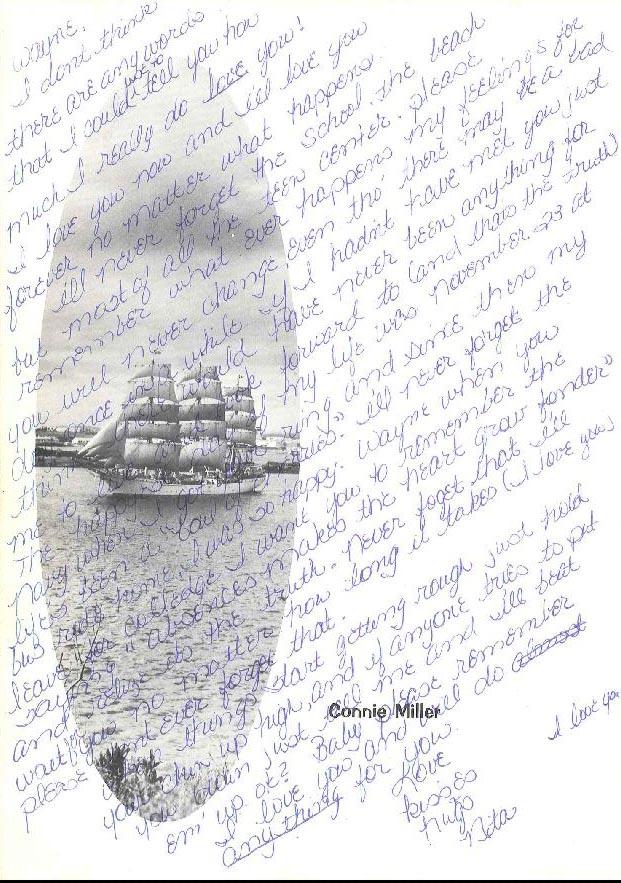 Wayne,
I dont think
there are any words
that I could use to tell you how
much I really do love you!
I love you now and I'll love you
forever no matter what happens.
I'll never forget the School, the beach
but most of all the teen center. please
remember what ever happens my feelings for
you will never change even tho' there may be a bad
once in a while if I hadn't have met you just
think would have never been anything for
me to look forward to (and thats the truth)
The of my life was november 23 at
navy when I got your ring and since then my
lifes been a "bowl of cherries". I'll never forget the
bus ride home, I was so happy. Wayne when you
leave for colledge I want you to remember the
saying "absences makes the heart grow fonder"
and relize its the truth. Never foget that I'll
wait for you no matter how long it takes (I love you)
please dont ever forget that.
When things start getting rough just hold
your chin up high and if anyone tries to put
you down just tell me and I'll beat
em' up ok? Baby please remember
I love you and I'll do almost
anything for you.
I love you
Love
kisses
hugs
Nita
Connie Miller